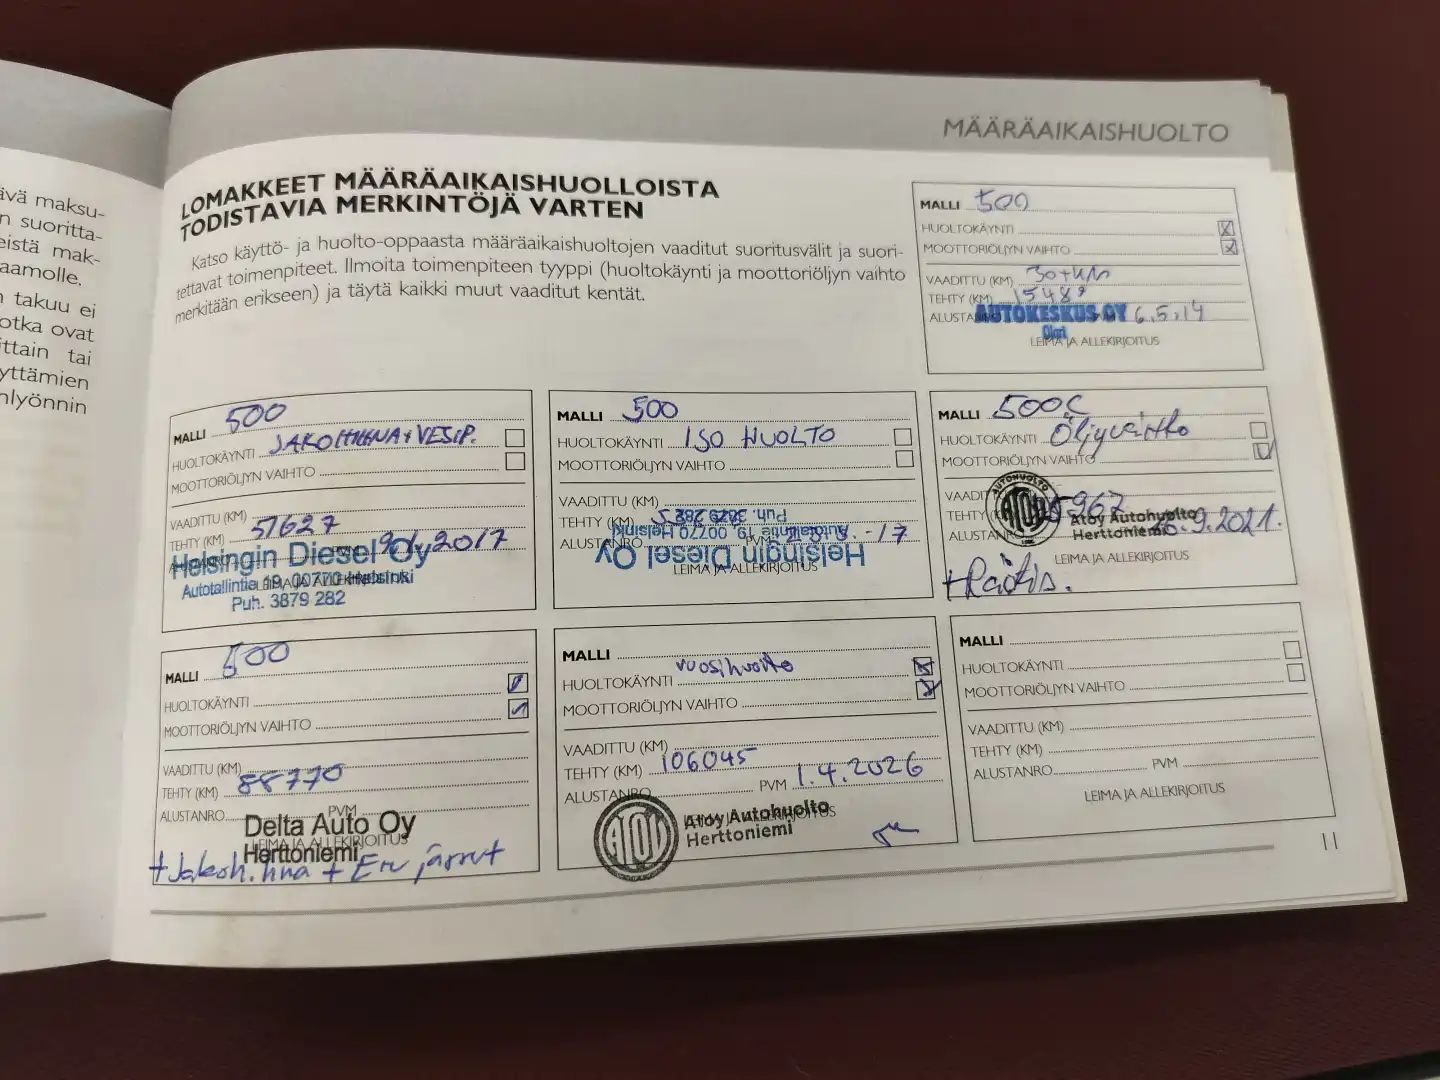 MÄÄRÄAIKAISHUOLTO
ävä maksu-
n suoritta-
eistä mak-
aamolle.
n takuu ei
otka ovat
ittain tai
yttämien
nlyönnin
LOMAKKEET MÄÄRÄAIKAISHUOLLOISTA
TODISTAVIA MERKINTÖJÄ VARTEN
Katso käyttö- ja huolto-oppaasta määräaikaishuoltojen vaaditut suoritusvälit ja suori-
tettavat toimenpiteet. Ilmoita toimenpiteen tyyppi (huoltokäynti ja moottoriöljyn vaihto
merkitään erikseen) ja täytä kaikki muut vaaditut kentät.
MALLI 500
HUOLTOKÄYNTI
MOOTTORIÖLJYN VAIHTO
VAADITTU (KM) 30tkm
TEHTY (KM) 15489
ALUSTANRO PVM 6.5.14
AUTOKESKUS OY
Olari
LEIMA JA ALLEKIRJOITUS
MALLI 500
HUOLTOKÄYNTI JAKOHIHNA+VESIP.
MOOTTORIÖLJYN VAIHTO
VAADITTU (KM)
TEHTY (KM) 51627
2017
Helsingin Diesel Oy
LEIMA JA ALLEKIRJOITUS
Autotallintie 19, 00770 Helsinki
Puh. 3879 282
MALLI 500
HUOLTOKÄYNTI ISO HUOLTO
MOOTTORIÖLJYN VAIHTO
VAADITTU (KM)
TEHTY (KM)
ALUSTANRO PVM -17
LEIMA JA ALLEKIRJOITUS
Helsingin Diesel Oy
Autotallintie 19, 00770 Helsinki
Puh. 3879 282
MALLI 500C
HUOLTOKÄYNTI Öljyvaihto
MOOTTORIÖLJYN VAIHTO
VAADITTU (KM)
TEHTY (KM) 967
ALUSTANRO .9.2021.
AUTOHUOLTO
ATOY
Atoy Autohuolto
Herttoniemi
LEIMA JA ALLEKIRJOITUS
MALLI 500
HUOLTOKÄYNTI
MOOTTORIÖLJYN VAIHTO
VAADITTU (KM)
TEHTY (KM) 88770
ALUSTANRO PVM
Delta Auto Oy
LEIMA JA ALLEKIRJOITUS
Herttoniemi
+Jakoh.hna + Etu jarrut
MALLI
HUOLTOKÄYNTI vuosihuolto
MOOTTORIÖLJYN VAIHTO
VAADITTU (KM)
TEHTY (KM) 106045
ALUSTANRO PVM 1.4.2026
ATOY
Atoy Autohuolto
LEIMA JA ALLEKIRJOITUS
Herttoniemi
MALLI
HUOLTOKÄYNTI
MOOTTORIÖLJYN VAIHTO
VAADITTU (KM)
TEHTY (KM)
ALUSTANRO PVM
LEIMA JA ALLEKIRJOITUS
11